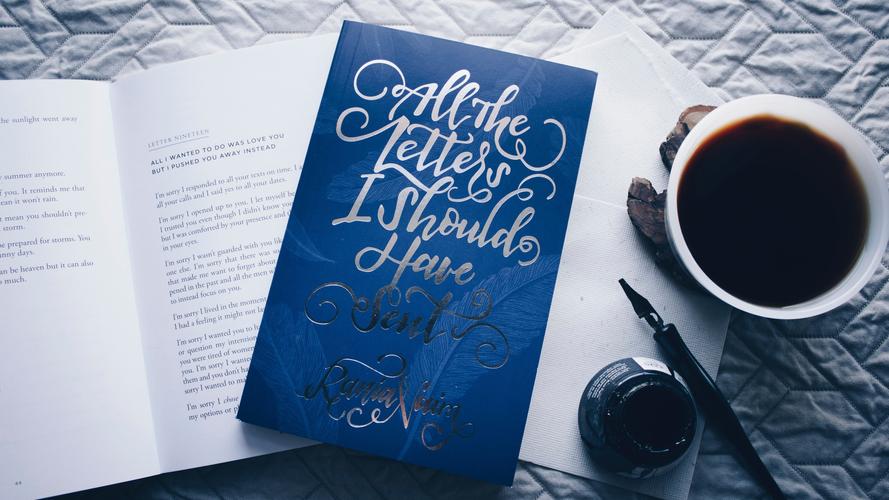 he sunlight went away
summer anymore.
you. It reminds me that
ean it won't rain.
mean you shouldn't pre-
storm.
be prepared for storms. You
nny days.
an be heaven but it can also
much.
44
LETTER NINETEEN
ALL I WANTED TO DO WAS LOVE YOU
BUT I PUSHED YOU AWAY INSTEAD
I'm sorry I responded to all your texts on time. I
all your calls and I said yes to all your dates.
I'm sorry I opened up to you. I let myself be
I trusted you even though I didn't know you
but I was comforted by your presence and
in your eyes.
I'm sorry I wasn't guarded with you like
one else. I'm sorry that there was so
that made me want to forget about
pened in the past and all the men w
to instead focus on you.
I'm sorry I lived in the moment
I had a feeling it might not la
I'm sorry I wanted you to h
or question my intention
you were tired of women
you. I'm sorry I wante
them and you don't ha
sorry I wanted to ma
I'm sorry I chose
my options or p
All the
Letters
I Should
Have
Sent
Rania Naim